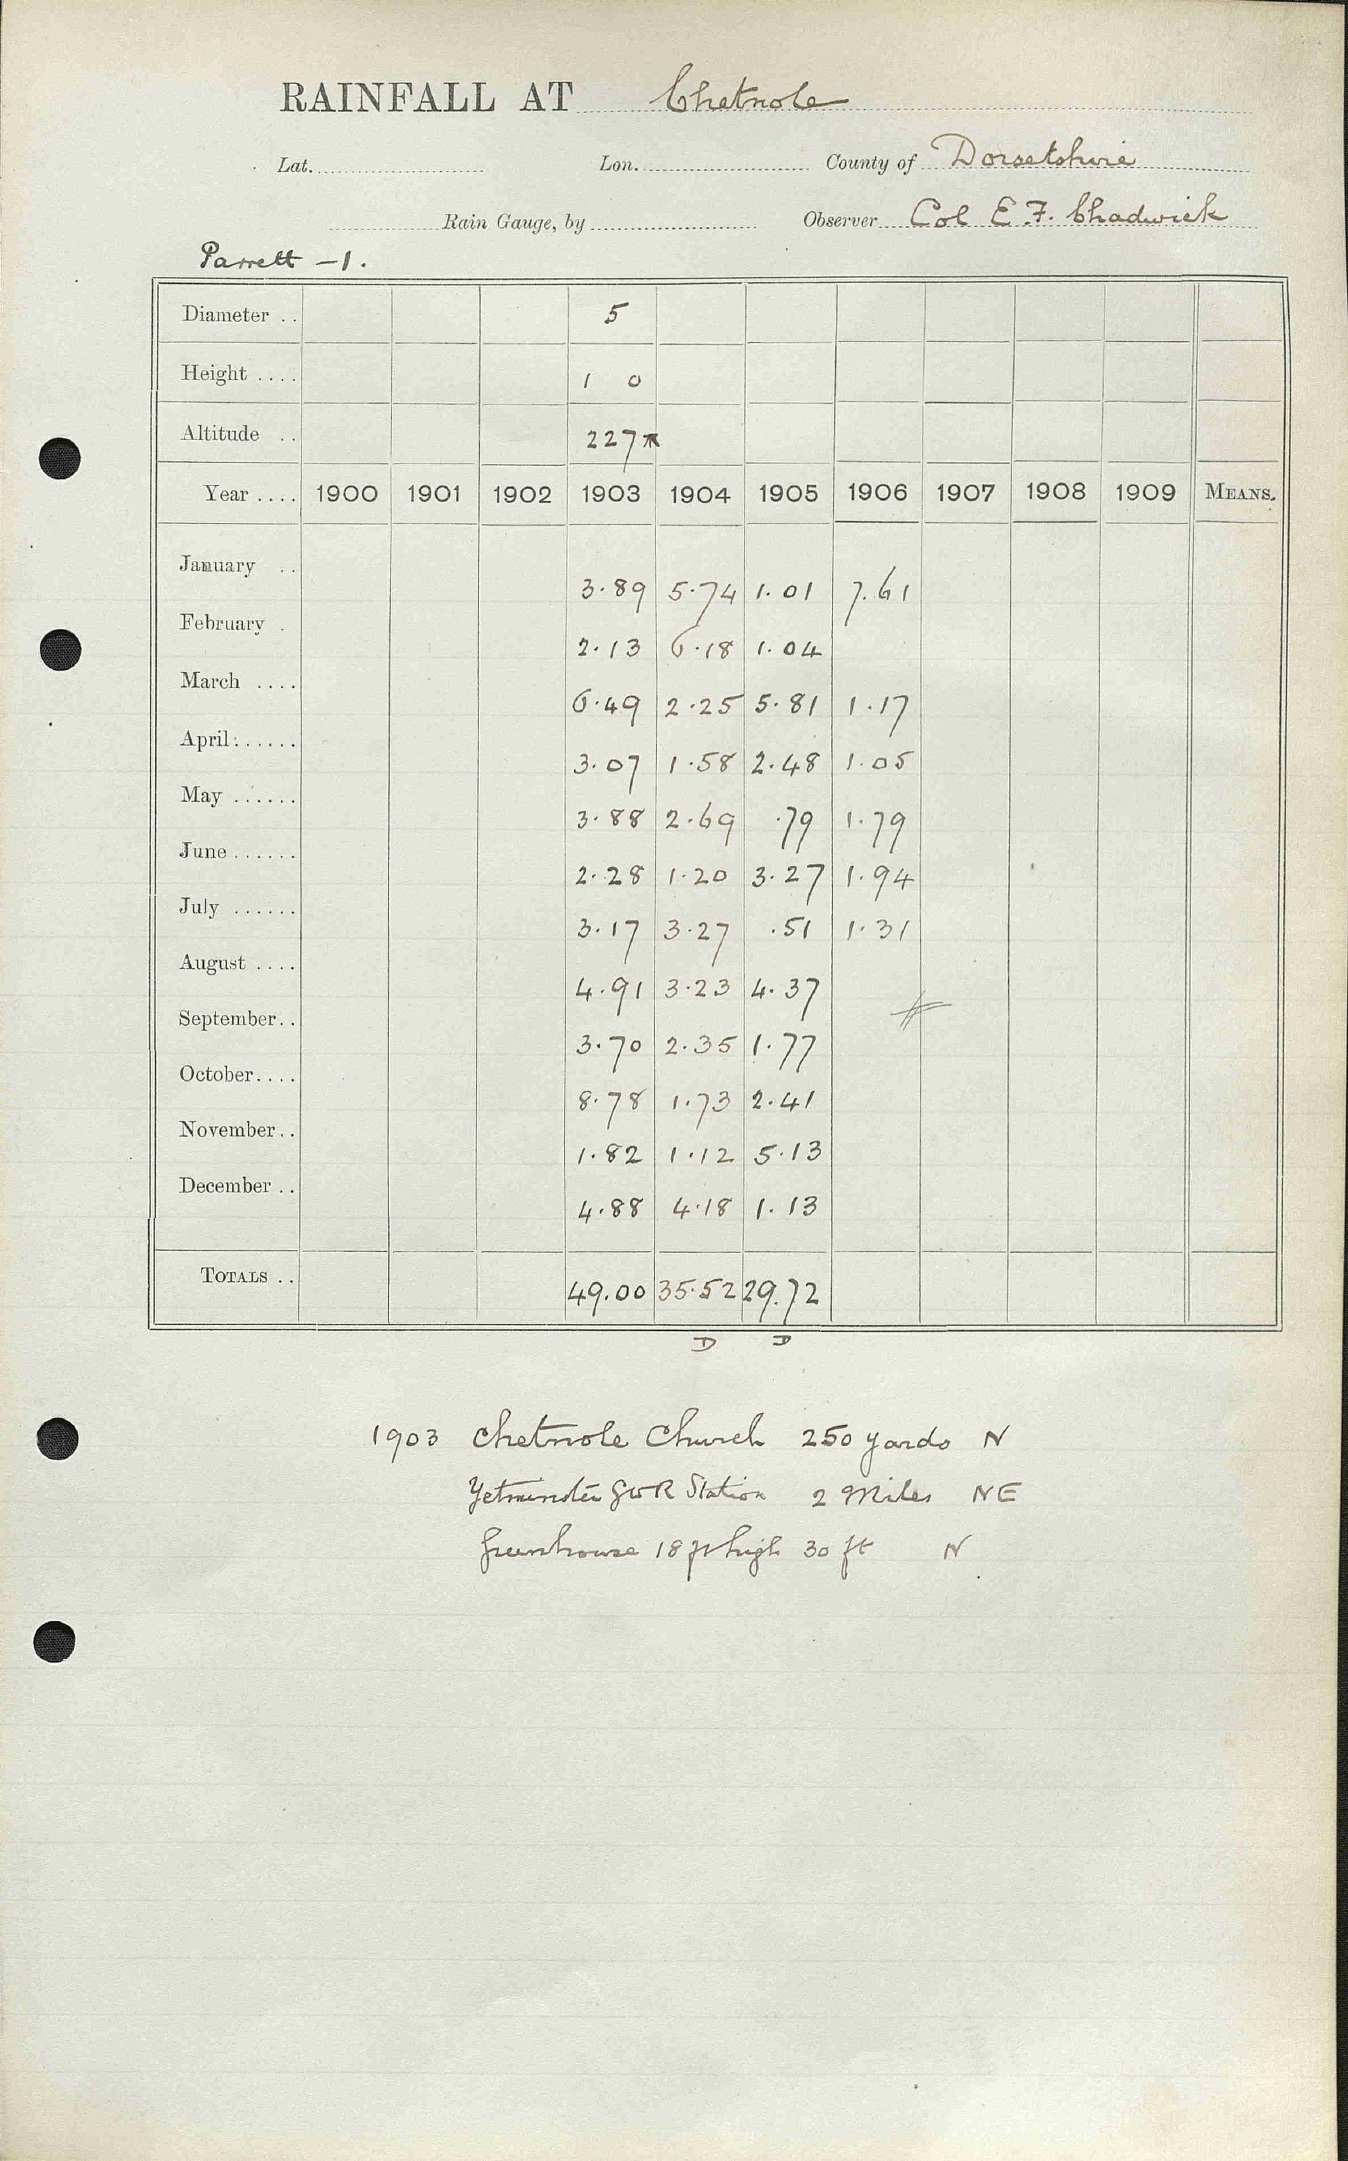 RAINFALL AT Chetnole
Lat. Lon. County of Dorsetshire
Rain Gauge, by Observer Col E. F. Chadwick
Parrett - 1.
Diameter .. 5
Height .... 1 0
Altitude .. 227
Year .... 1900 1901 1902 1903 1904 1905 1906 1907 1908 1909 MEANS.
January .. 3.89 5.74 1.01 7.61
February . 2.13 6.18 1.04
March .... 6.49 2.25 5.81 1.17
April ...... 3.07 1.58 2.48 1.05
May ...... 3.88 2.69 .79 1.79
June ...... 2.28 1.20 3.27 1.94
July ...... 3.17 3.27 .51 1.31
August .... 4.91 3.23 4.37
September.. 3.70 2.35 1.77
October.... 8.78 1.73 2.41
November.. 1.82 1.12 5.13
December .. 4.88 4.18 1.13
TOTALS .. 49.00 35.52 29.72
D D
1903 Chetnole Church 250 yards N
Yetminster GWR Station 2 Miles NE
Greenhouse 18 ft high 30 ft N